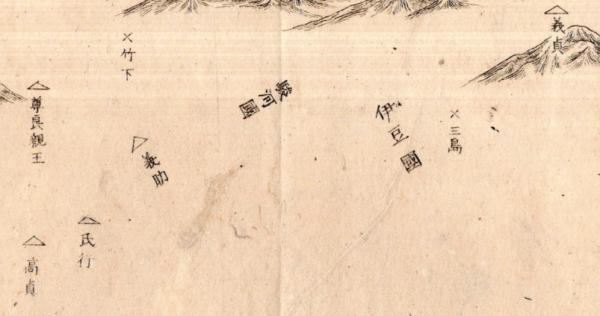 義貞
×三島
伊豆國
駿河國
×竹下
義助
尊良親王
氏行
高貞